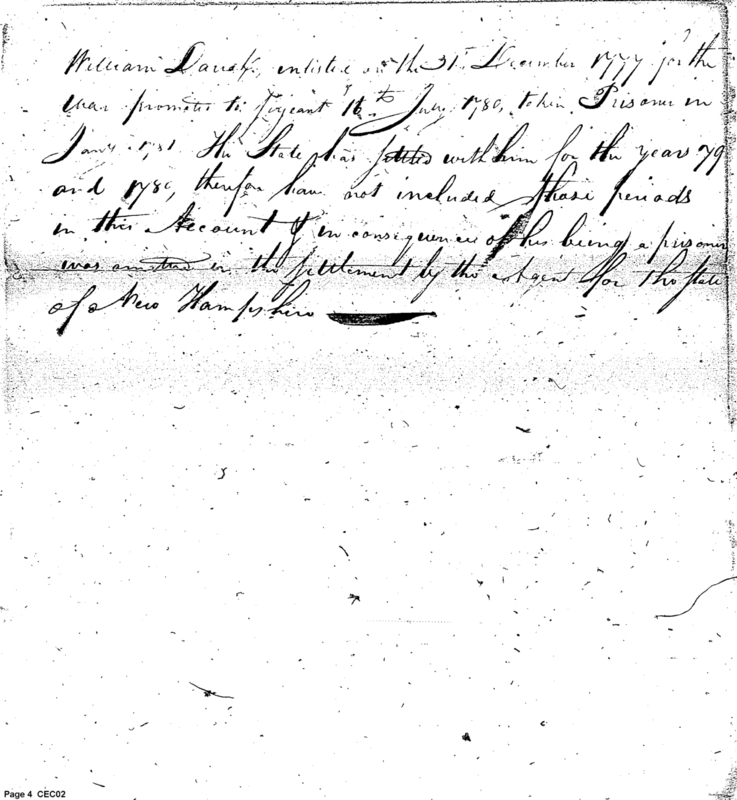 William enlisted on the 31st December 1777 for the
War promoted to Serjeant 16th July 1780, taken Prisoner in
Jany 1781. The State has settled with him for the years 79
and 1780, therefore have not included those periods
in this Account & in consequence of his being a prisoner
was omitted in the settlement by the Agent for the State
of New Hampshire
Page 4 CEC02